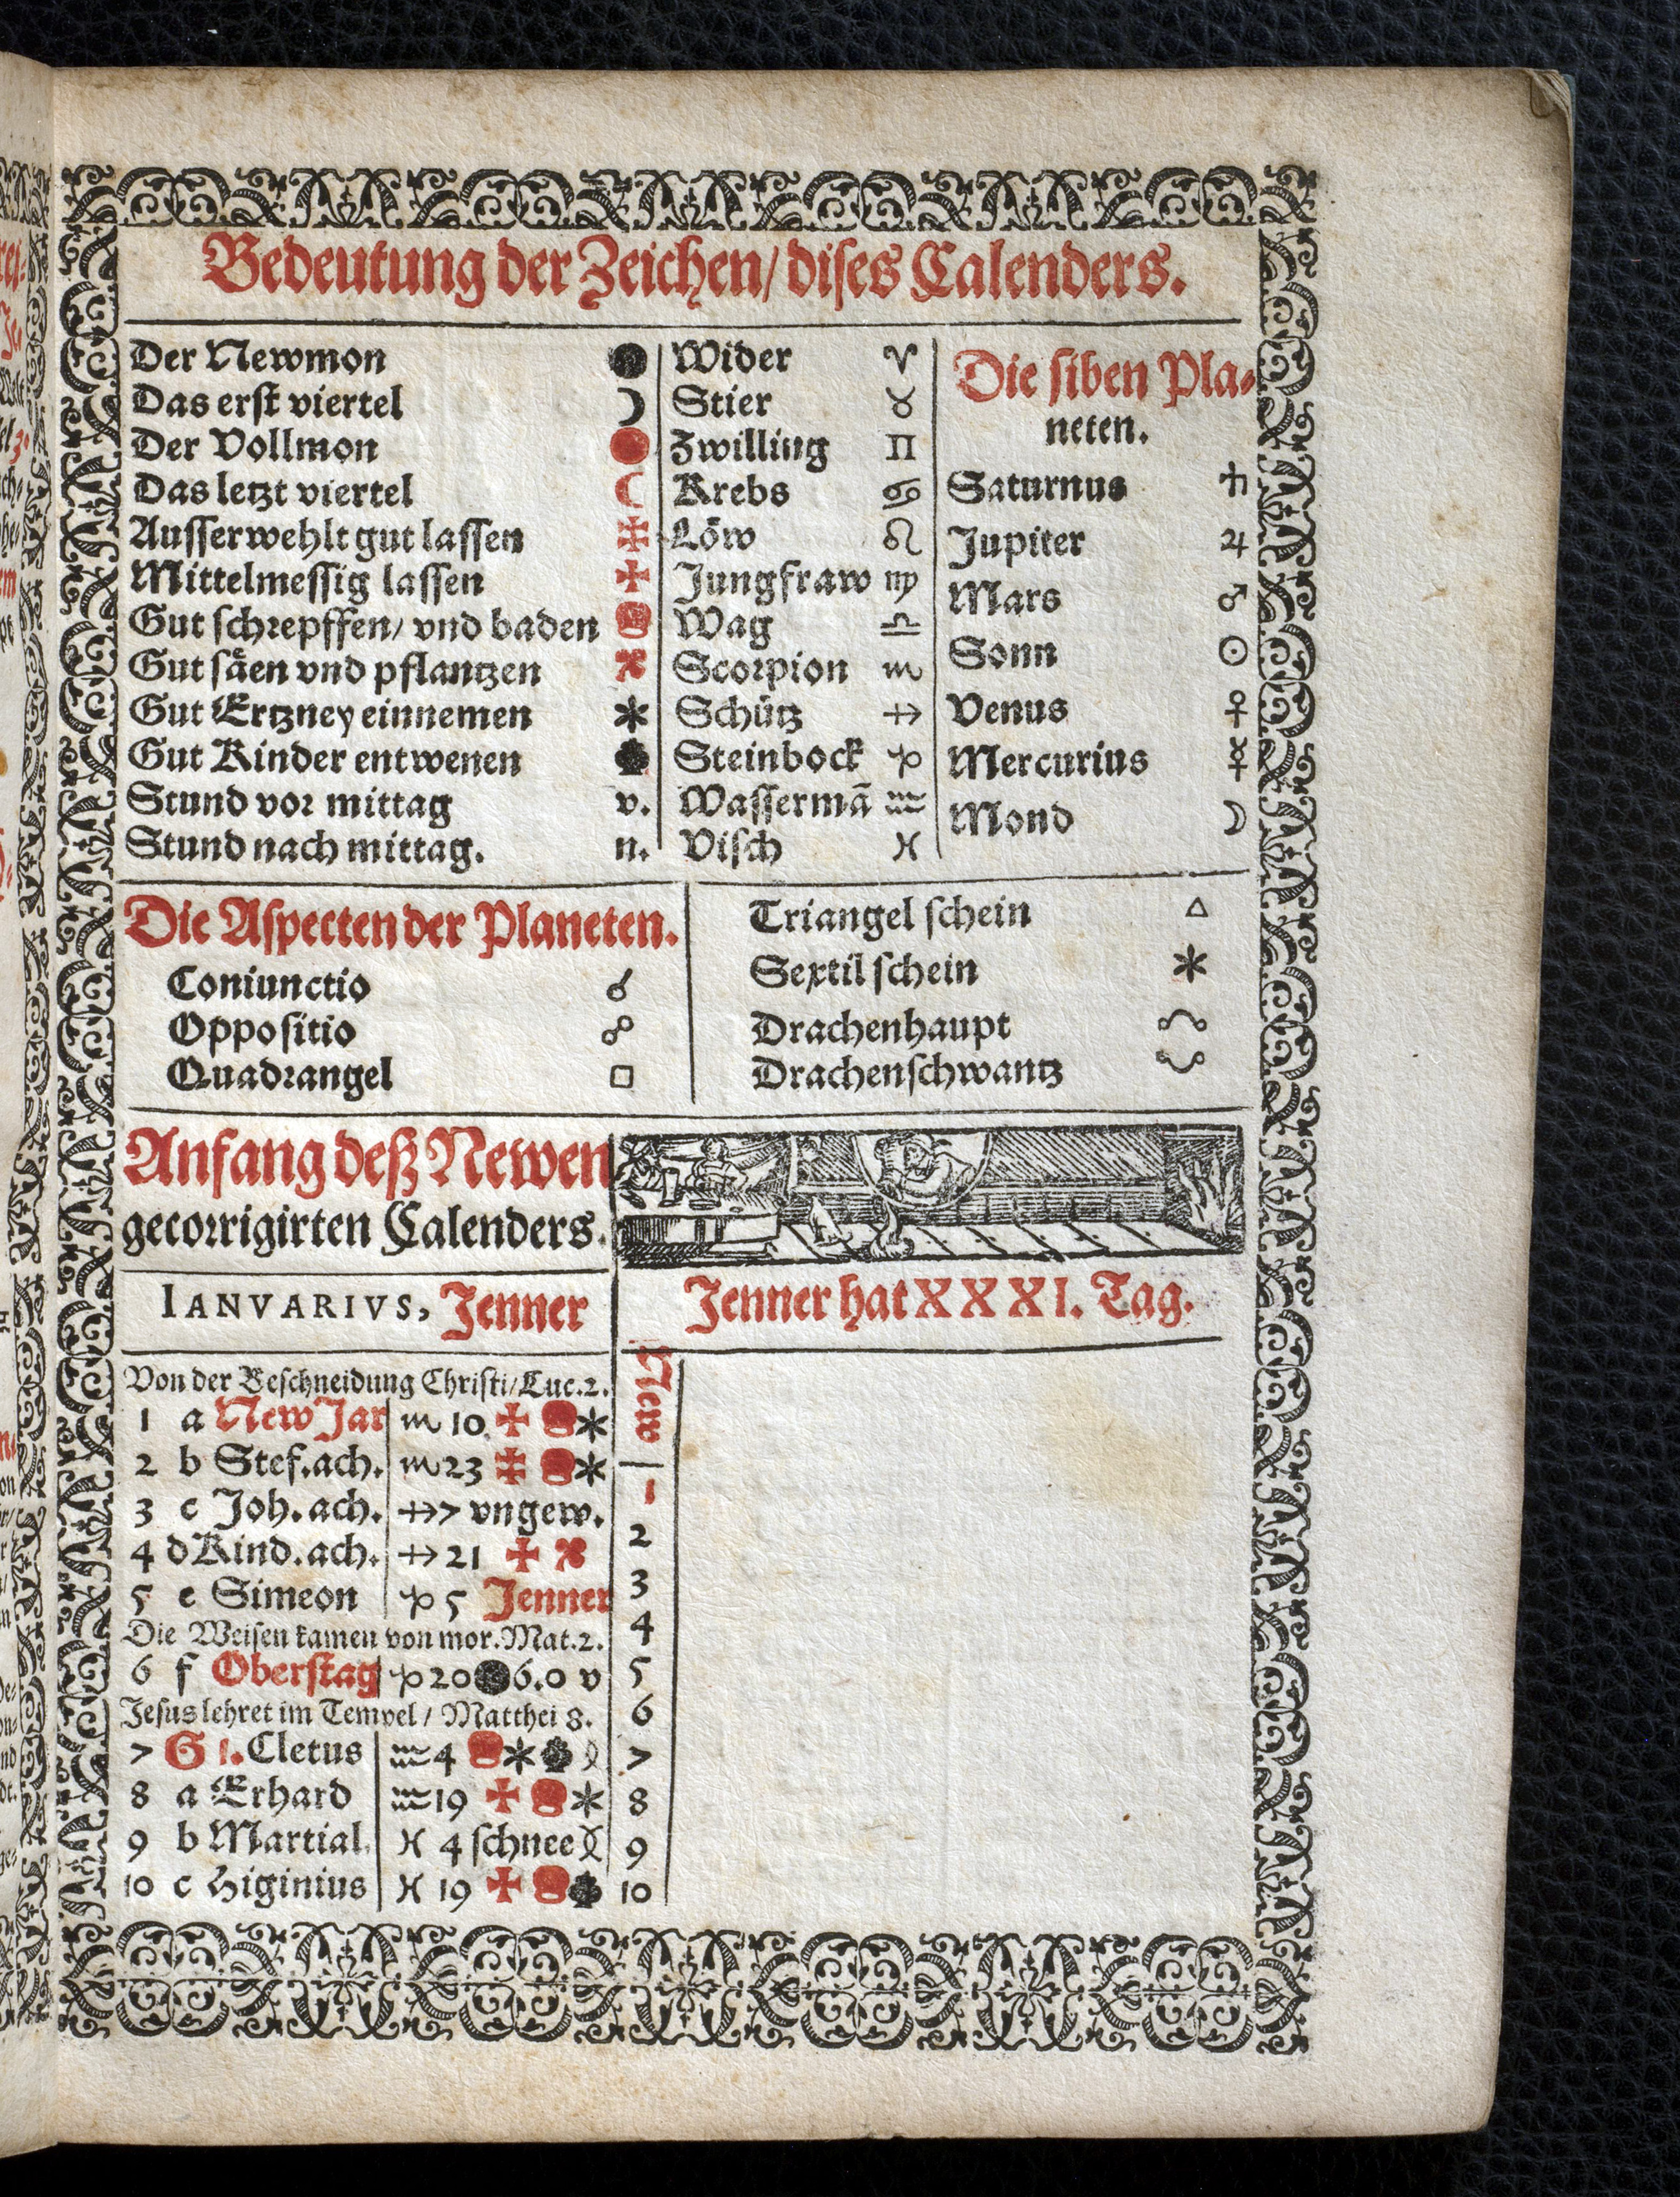 Bedeutung der Zeichen/ diſes Calenders.
Der Newmon ●
Das erſt viertel ☽
Der Vollmon ●
Das letzt viertel ☾
Auſſerwehlt gut laſſen
Mittelmeſſig laſſen ✠
Gut ſchrepffen/ vnd baden
Gut ſäen vnd pflantzen
Gut Ertzney einnemen *
Gut Kinder entwenen
Stund vor mittag v.
Stund nach mittag. n.
Wider ♈
Stier ♉
Zwilling ♊
Krebs ♋
Löw ♌
Jungfraw ♍
Wag ♎
Scorpion ♏
Schütz ♐
Steinbock ♑
Waſſermā ♒
Viſch ♓
Die ſiben Pla⸗
neten.
Saturnus ♄
Jupiter ♃
Mars ♂
Sonn ☉
Venus ♀
Mercurius ☿
Mond ☽
Die Aſpecten der Planeten.
Coniunctio ☌
Oppoſitio ☍
Quadrangel □
Triangel ſchein △
Sextil ſchein *
Drachenhaupt ☊
Drachenſchwantz ☋
Anfang deß Newen
gecorrigirten Calenders.
IANVARIVS, Jenner
Jenner hat XXXI. Tag.
Von der Beſchneidung Chriſti/ Luc. 2.
1 a New Jar ♏ 10 ✠ *
2 b Stef. ach. ♏ 23 *
3 c Joh. ach. ♐ 7 vngew.
4 d Kind. ach. ♐ 21 ✠
5 e Simeon ♑ 5 Jenner
Die Weiſen kamen von mor. Mat. 2.
6 f Oberſtag ♑ 20 ● 6.0 v
Jeſus lehret im Tempel / Matthei 8.
7 G 1. Cletus ♒ 4 *
8 a Erhard ♒ 19 ✠ *
9 b Martial. ♓ 4 ſchnee
10 c Higinius ♓ 19 ✠
New
1
2
3
4
5
6
7
8
9
10